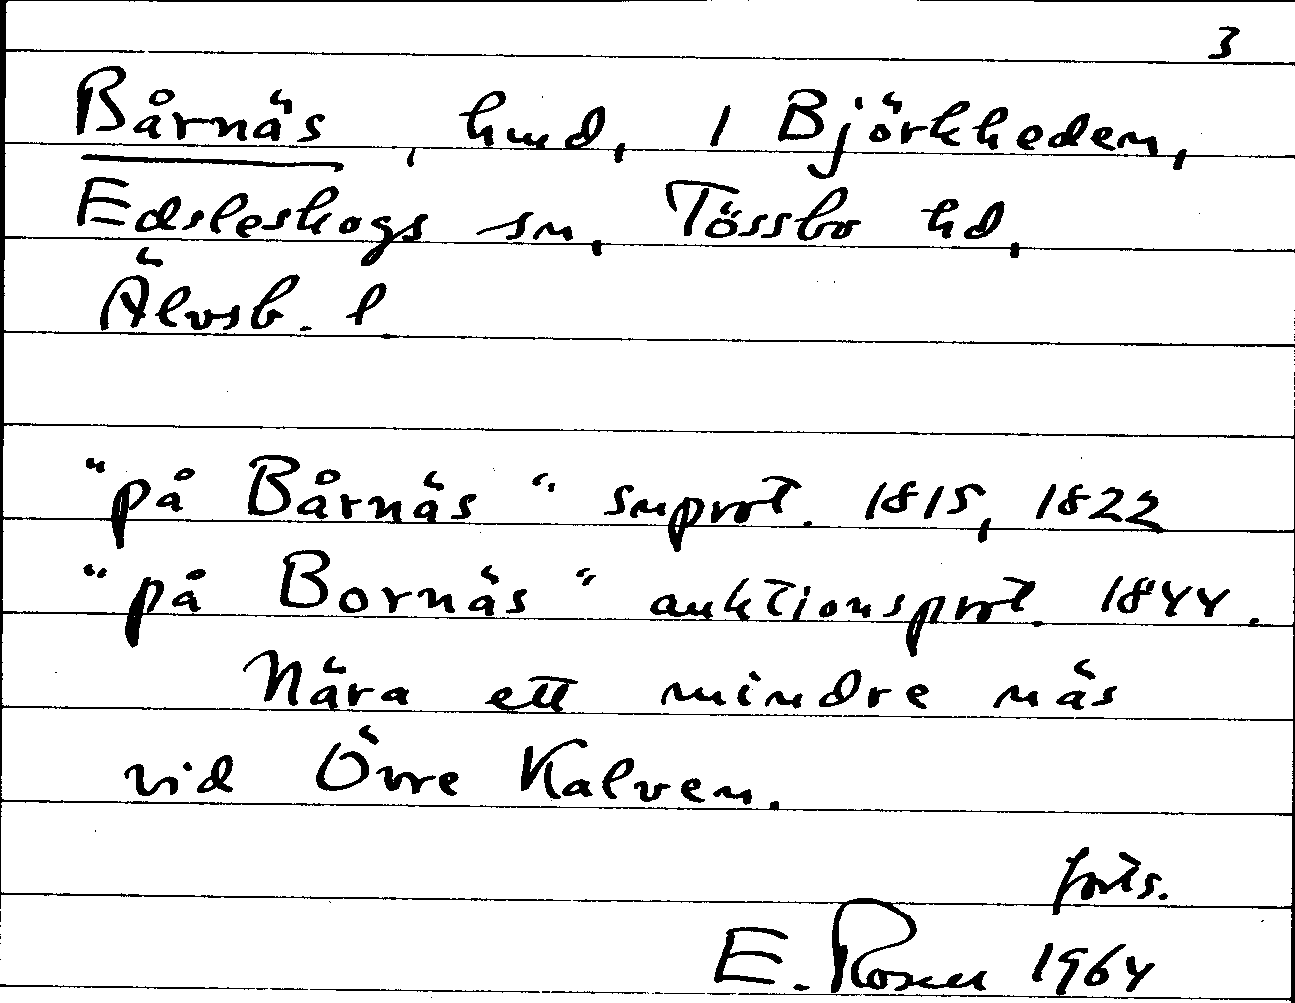 3
Bårnäs, hmd, 1 Björkheden,
Edsleskogs sn, Tössbo hd,
Älvsb. l
"på Bårnäs" snprot. 1815, 1822
"på Bornäs" auktionsprot. 1844.
Nära ett mindre näs
vid Övre Kalven.
forts.
E. Rosen 1964